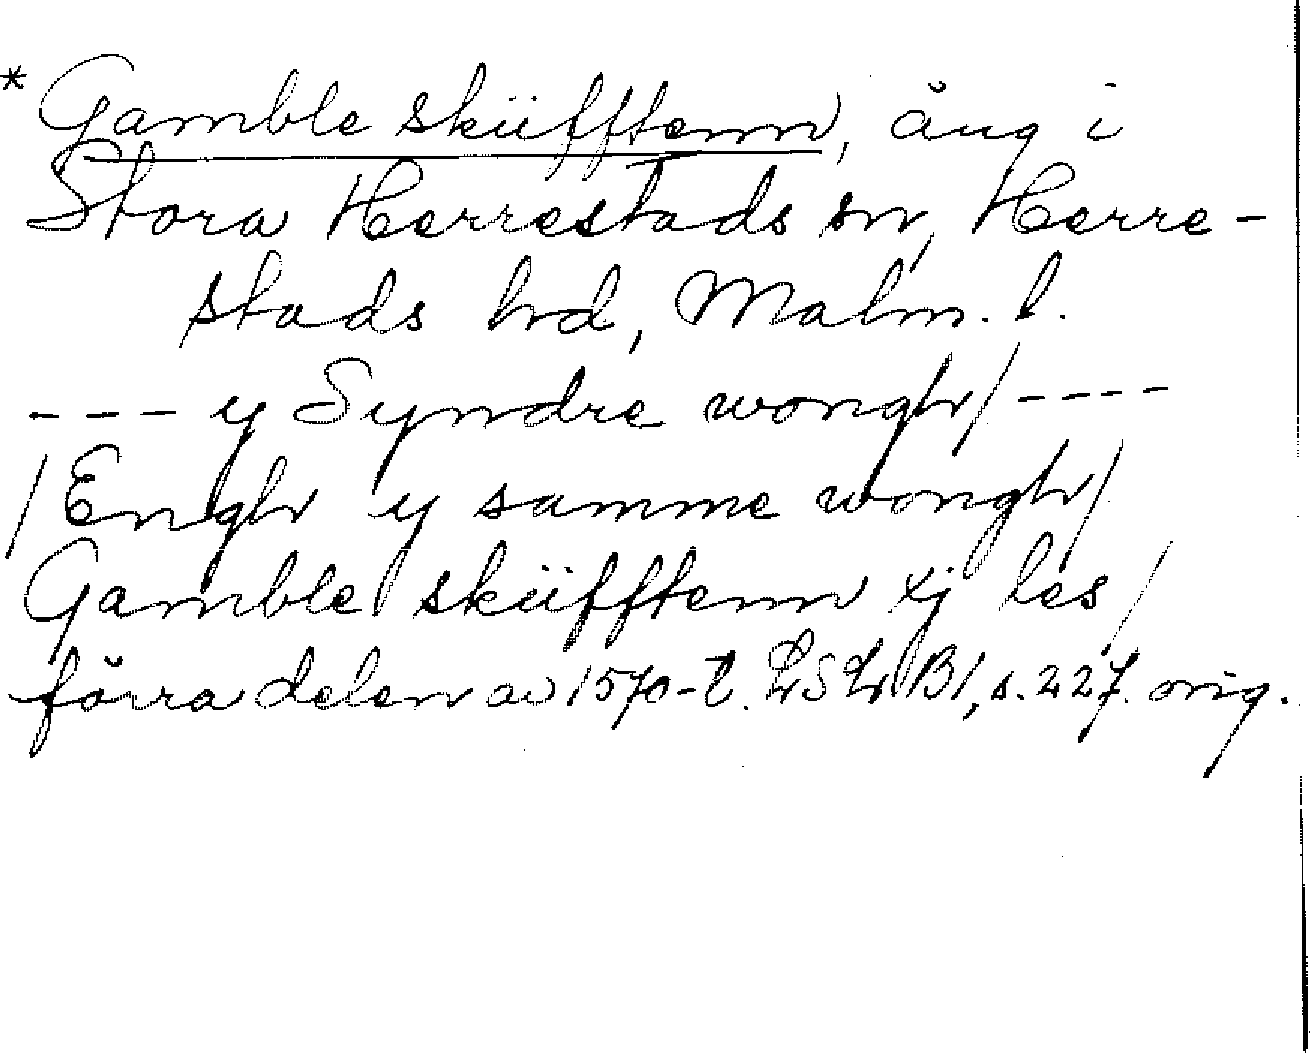 * Gamble sküfftenn, äng i
Stora Herrestads sn, Herre-
stads hd, Malm. l.
--- y Syndre wongh/----
/Engh y samme wongh/
Gamble sküfftenn xj les/
förra delen av 1570-t. LSLr B1, s. 227. orig.